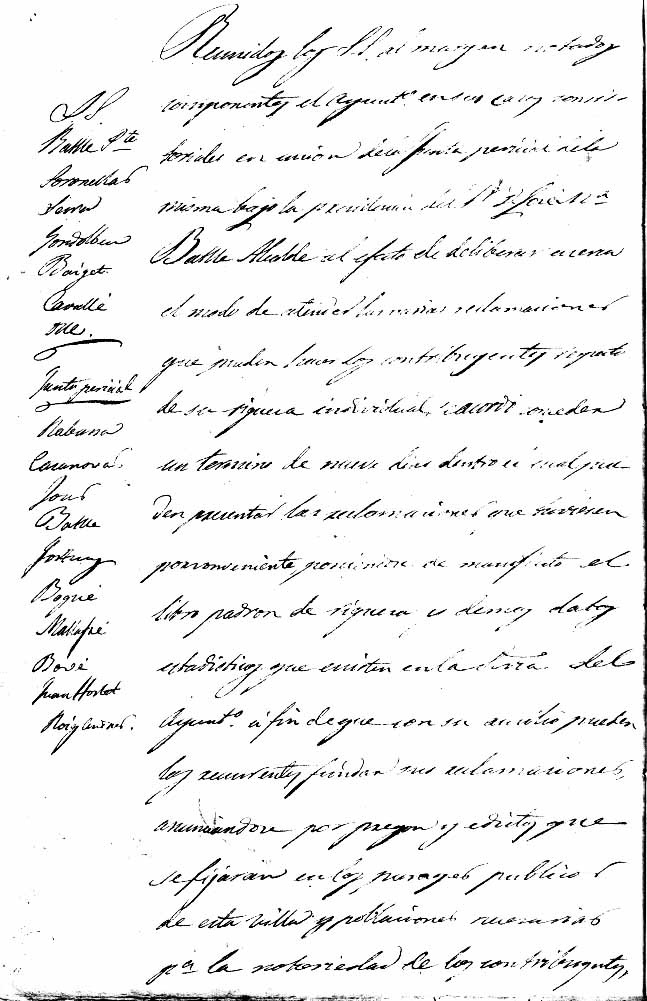 SS.
Batlle Pte
Soronellas
Serra
Baiget
Cavallé
Junta pericial
Rabana
Casanovas
Batlle
Fortuny
Bogué
Bové
Juan Hortet
Reunidos los SS. al margen notados
componentes el Ayunto. en sus casas consis-
toriales en union de la Junta pericial de la
misma bajo la presidencia del Sr. D. José Ma
Batlle Alcalde al efecto de deliberar acerca
el modo de atender las varias reclamaciones
que puedan hacer los contribuyentes respecto
de su riquesa individual, acordó conceder
un termino de nueve dias dentro el cual pue-
den presentar las reclamaciones que tuviesen
por conveniente, poniendose de manifiesto el
libro padron de riquesa y demas datos
estadisticos que existen en la Sria. del
Ayunto. á fin de que con su auxilio puedan
los recurrentes fundar sus reclamaciones,
anunciandose por pregon y edictos que
se fijaran en los parages publicos
de esta villa y poblaciones necesarias
pa. la notoriedad de los contribuyentes,